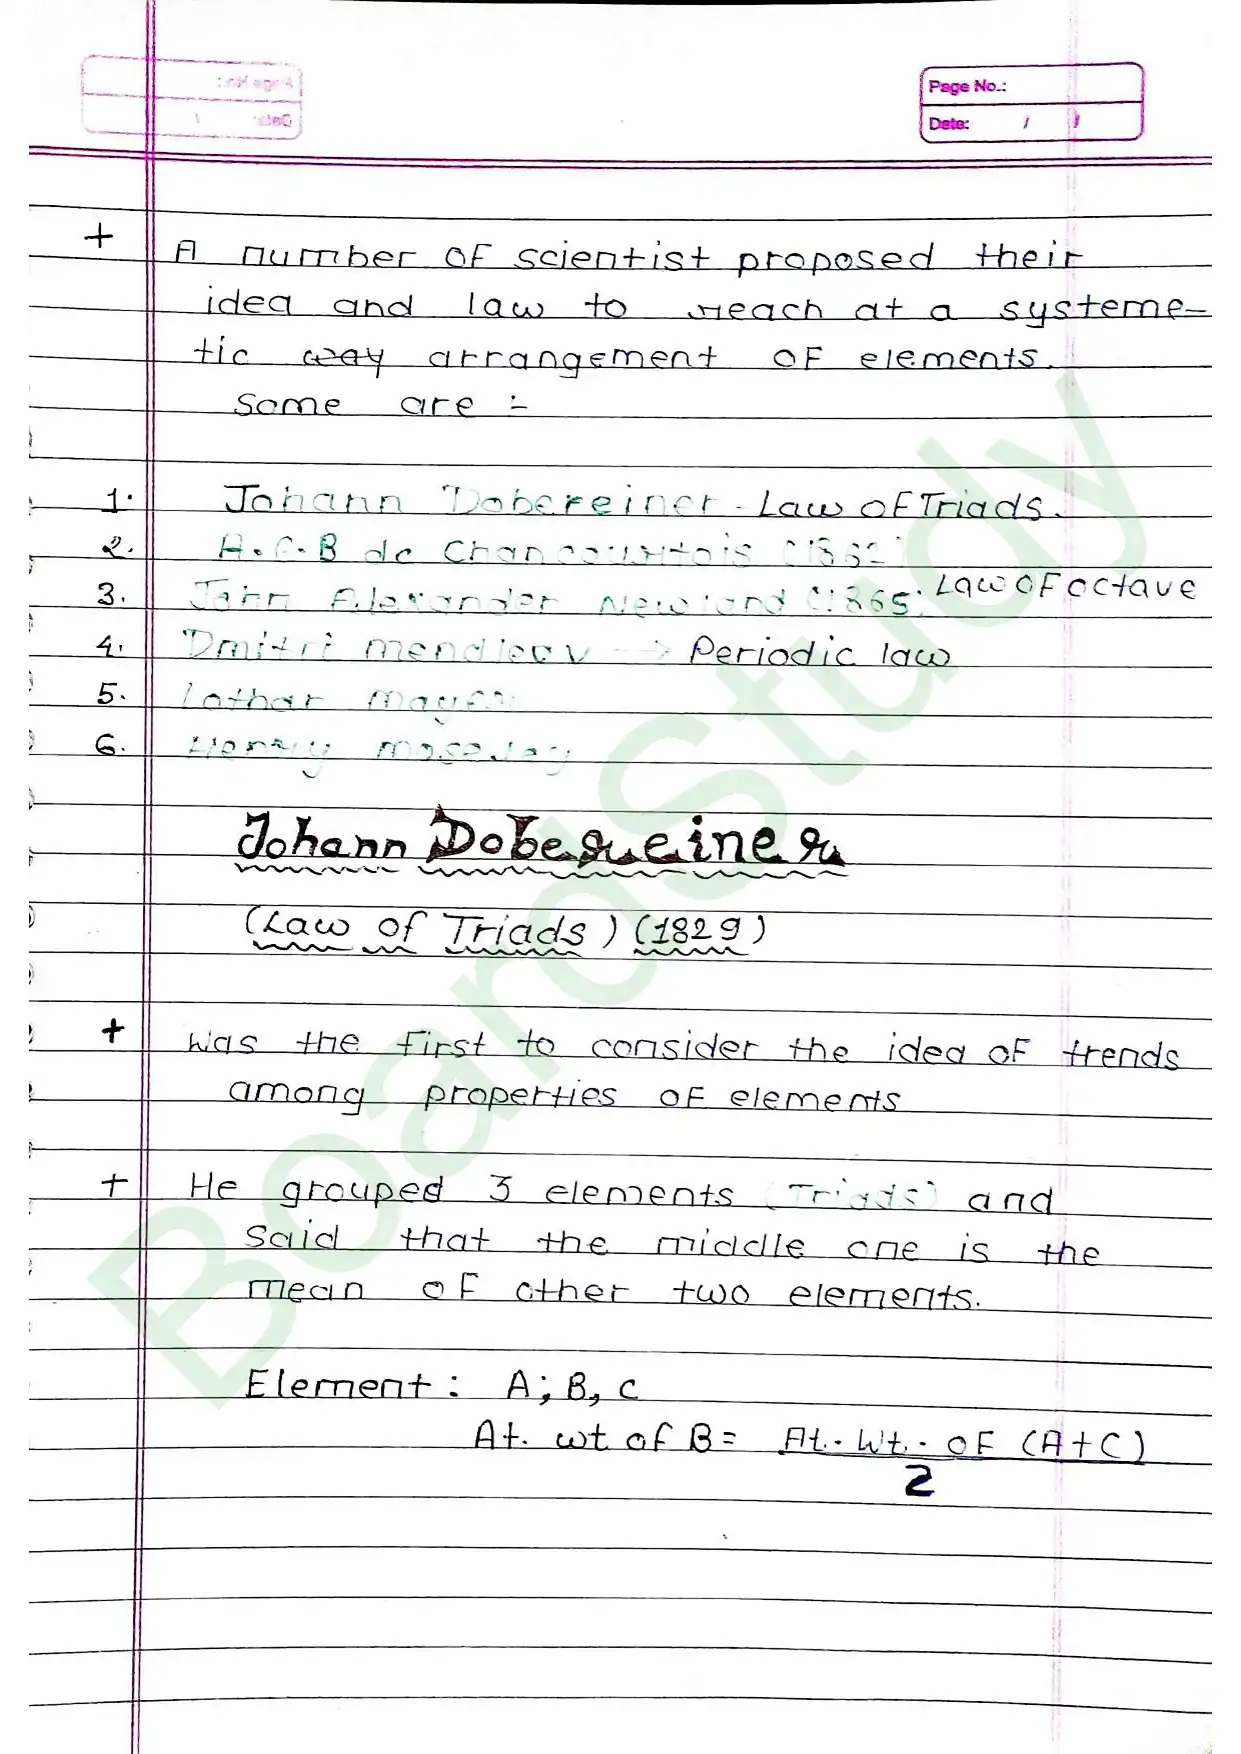 Page No.:
Date: / /
+ A number of scientist proposed their
idea and law to reach at a systeme-
tic way arrangement of elements.
Some are :-
1. Johann Dobereiner - Law of Triads.
2. A.E.B de Chancourtois (1862)
3. John Alexander Newland (1865) Law of octave
4. Dmitri mendleev → Periodic law
5. Lothar Mayer
6. Henry moseley
Johann Dobereiner
(Law of Triads) (1829)
+ Was the first to consider the idea of trends
among properties of elements
+ He grouped 3 elements (Triads) and
said that the middle one is the
mean of other two elements.
Element : A; B, C
At. wt of B = At. Wt. of (A+C)
2
BoardStudy